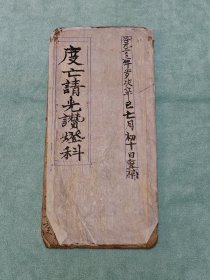 年岁次辛巳七月初十日
度亡請光讚燈科